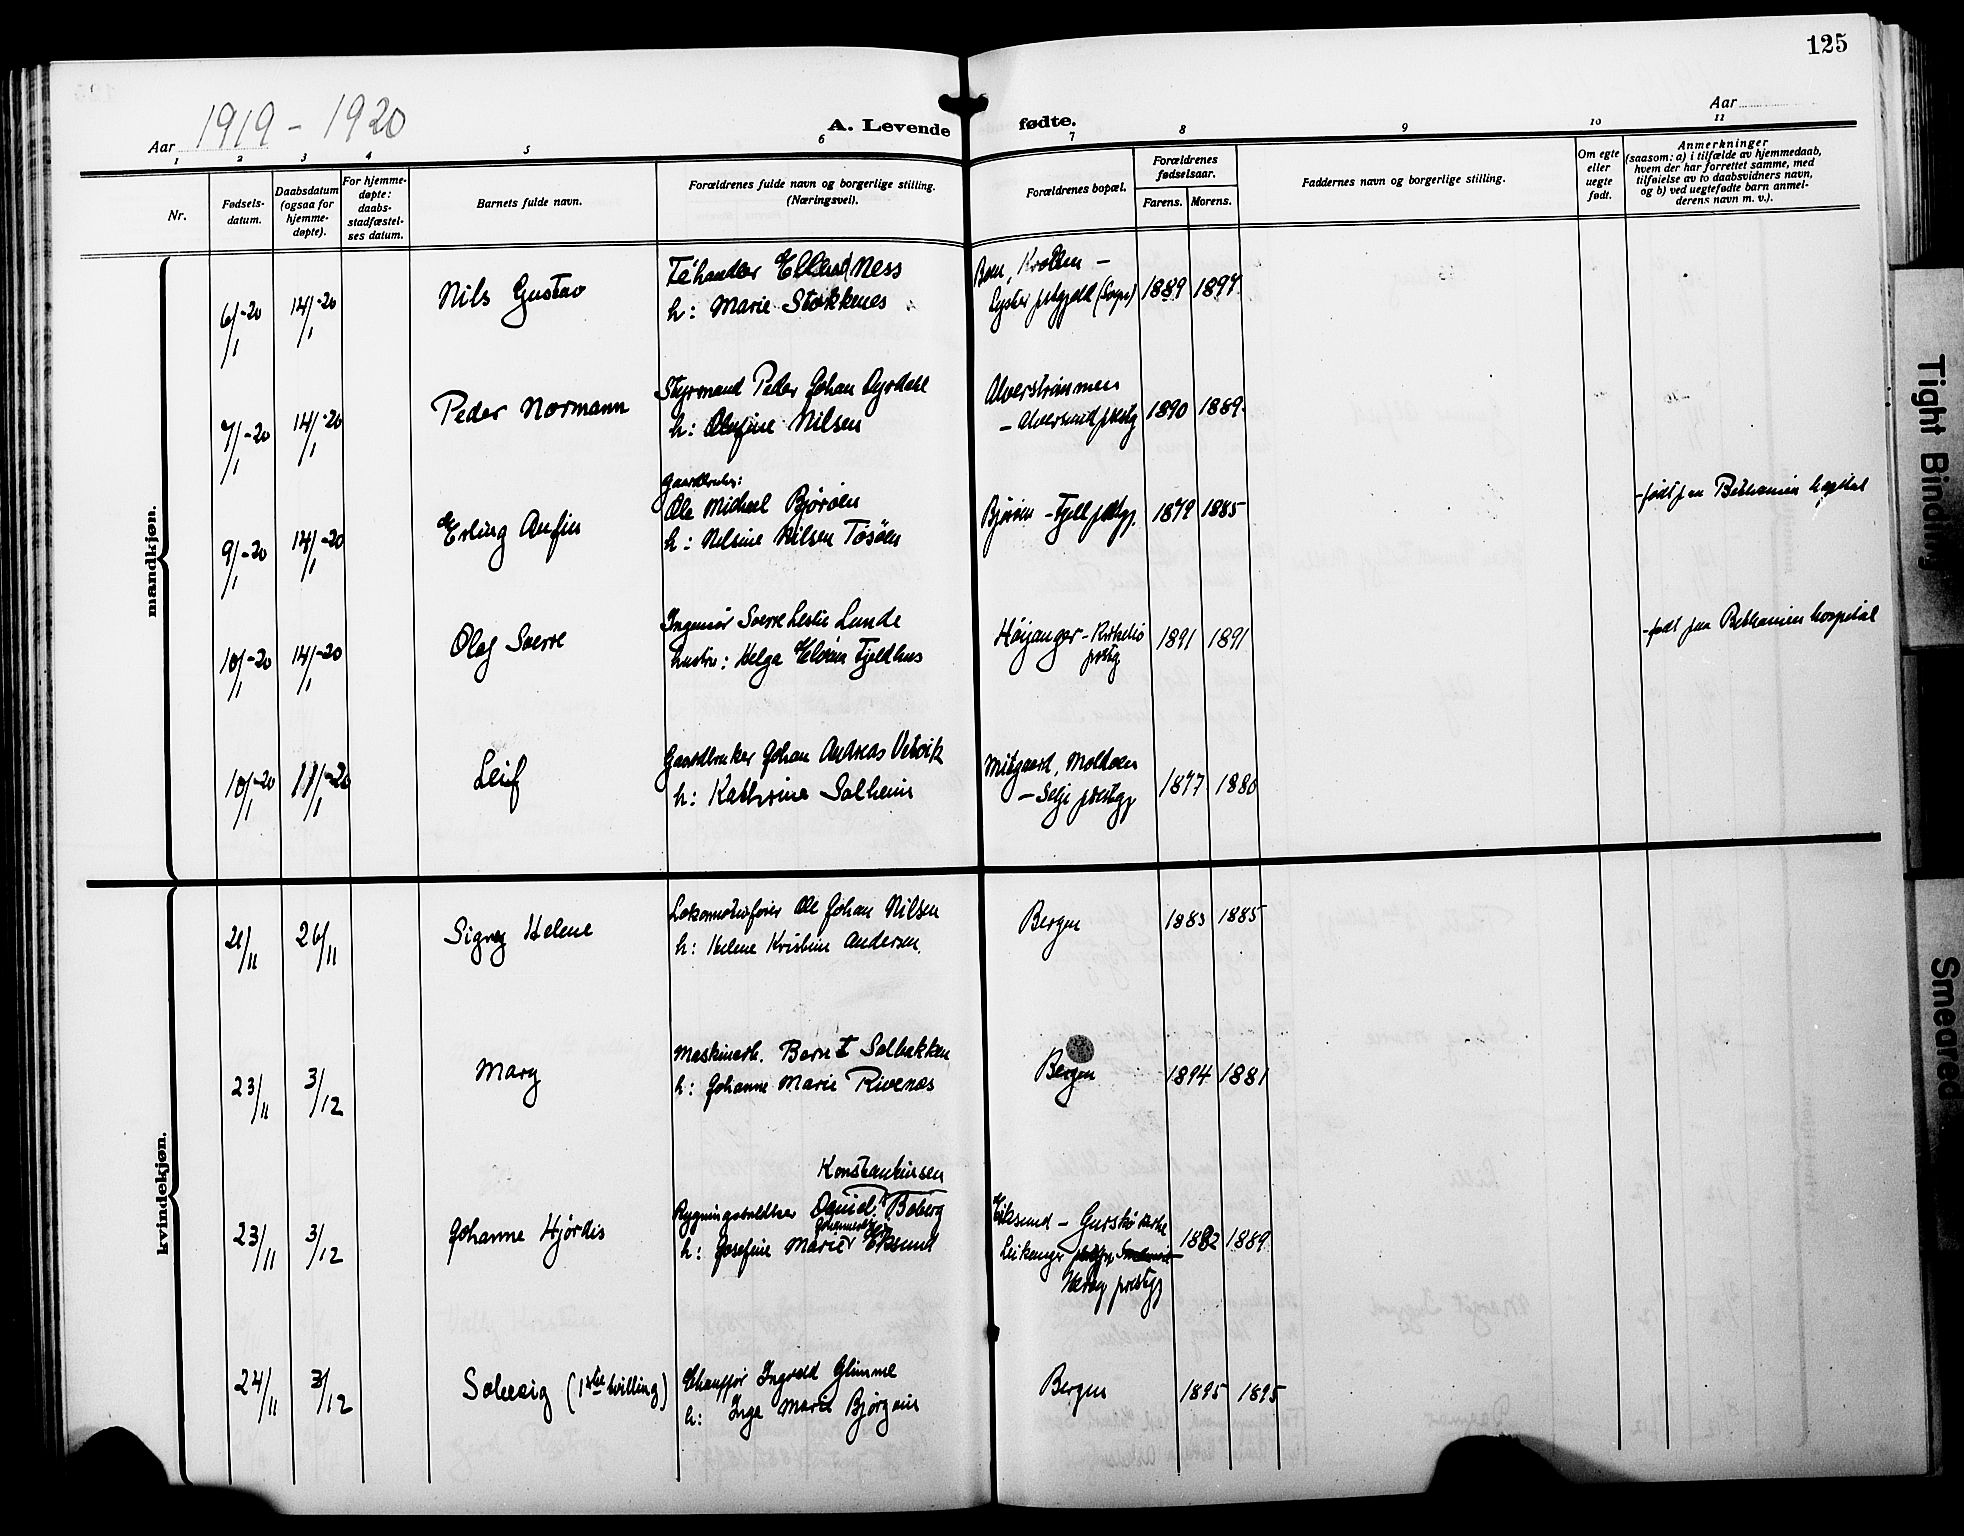 125
1919 - 1920
Aar
A. Levende fødte.
Aar
1 2 3 4 5 6 7 8 9 10 11
Nr.
Fødsels-
datum.
Daabsdatum
(ogsaa for
hjemme-
døpte).
For hjemme-
døpte:
daabs-
stadfæstel-
ses datum.
Barnets fulde navn.
Forældrenes fulde navn og borgerlige stilling.
(Næringsvei).
Forældrenes bopæl.
Forældrenes
fødselsaar.
Farens. Morens.
Faddernes navn og borgerlige stilling.
Om egte
eller
uegte
født.
Anmerkninger
(saasom: a) i tilfælde av hjemmedaab,
hvem der har forrettet samme, med
tilføielse av to daabsvidners navn,
og b) ved uegtefødte barn anmel-
derens navn m. v.).
mandkjøn.
6/1-20 14/1-20 Nils Gustav
Ness
h: Marie Stokkenes
Lyster (Sogn)
1889 1897
7/1-20 14/1-20 Peder Normann
Styrmand Peder Johan
h: Nilsen
Alverstrømmen
- Alversund prestg
1890 1889
9/1-20 14/1-20 Erling Anfin
Gaardbruker:
Ole Michael Bjørøen
h: Nilsine Nilsen Tøsøen
Bjørøen - Fjell prestgj.
1879 1885
- født paa Bethanien hospital
10/1-20 14/1-20 Olaf Sverre
Ingeniør Sverre Leslie Lunde
hustru: Helga Fjeldhus
Høyanger - Kirkebø
prestg
1891 1891
- født paa Bethanien hospital
10/1-20 /1-20 Leif
Gaardbruker Johan Andreas Vetvik
h: Kathrine Solheim
Mitgaard, Moldøen
- Selje prestgj
1877 1880
kvindekjøn.
21/11 26/11 Signy Helene
Lokomotivfører Ole Johan Nilsen
h: Helene Kristine Andersen
Bergen
1883 1885
23/11 3/12 Mary
Maskinarb. Bernt Solbakken
h: Johanne Marie Rivenes
Bergen
1894 1881
23/11 3/12 Johanne Hjørdis
Konstantinsen
Daniel Boberg
h: Josefine Marie Eksund
Eiksund - Gurskø kirke
Leikanger
Herøy prestgj
1882 1889
24/11 3/12 Solveig (1ste tvilling)
Chauffør Ingvald Glimme
h: Inga Marie Bjørgein
Bergen
1895 1895
Tight Binding
Smeared